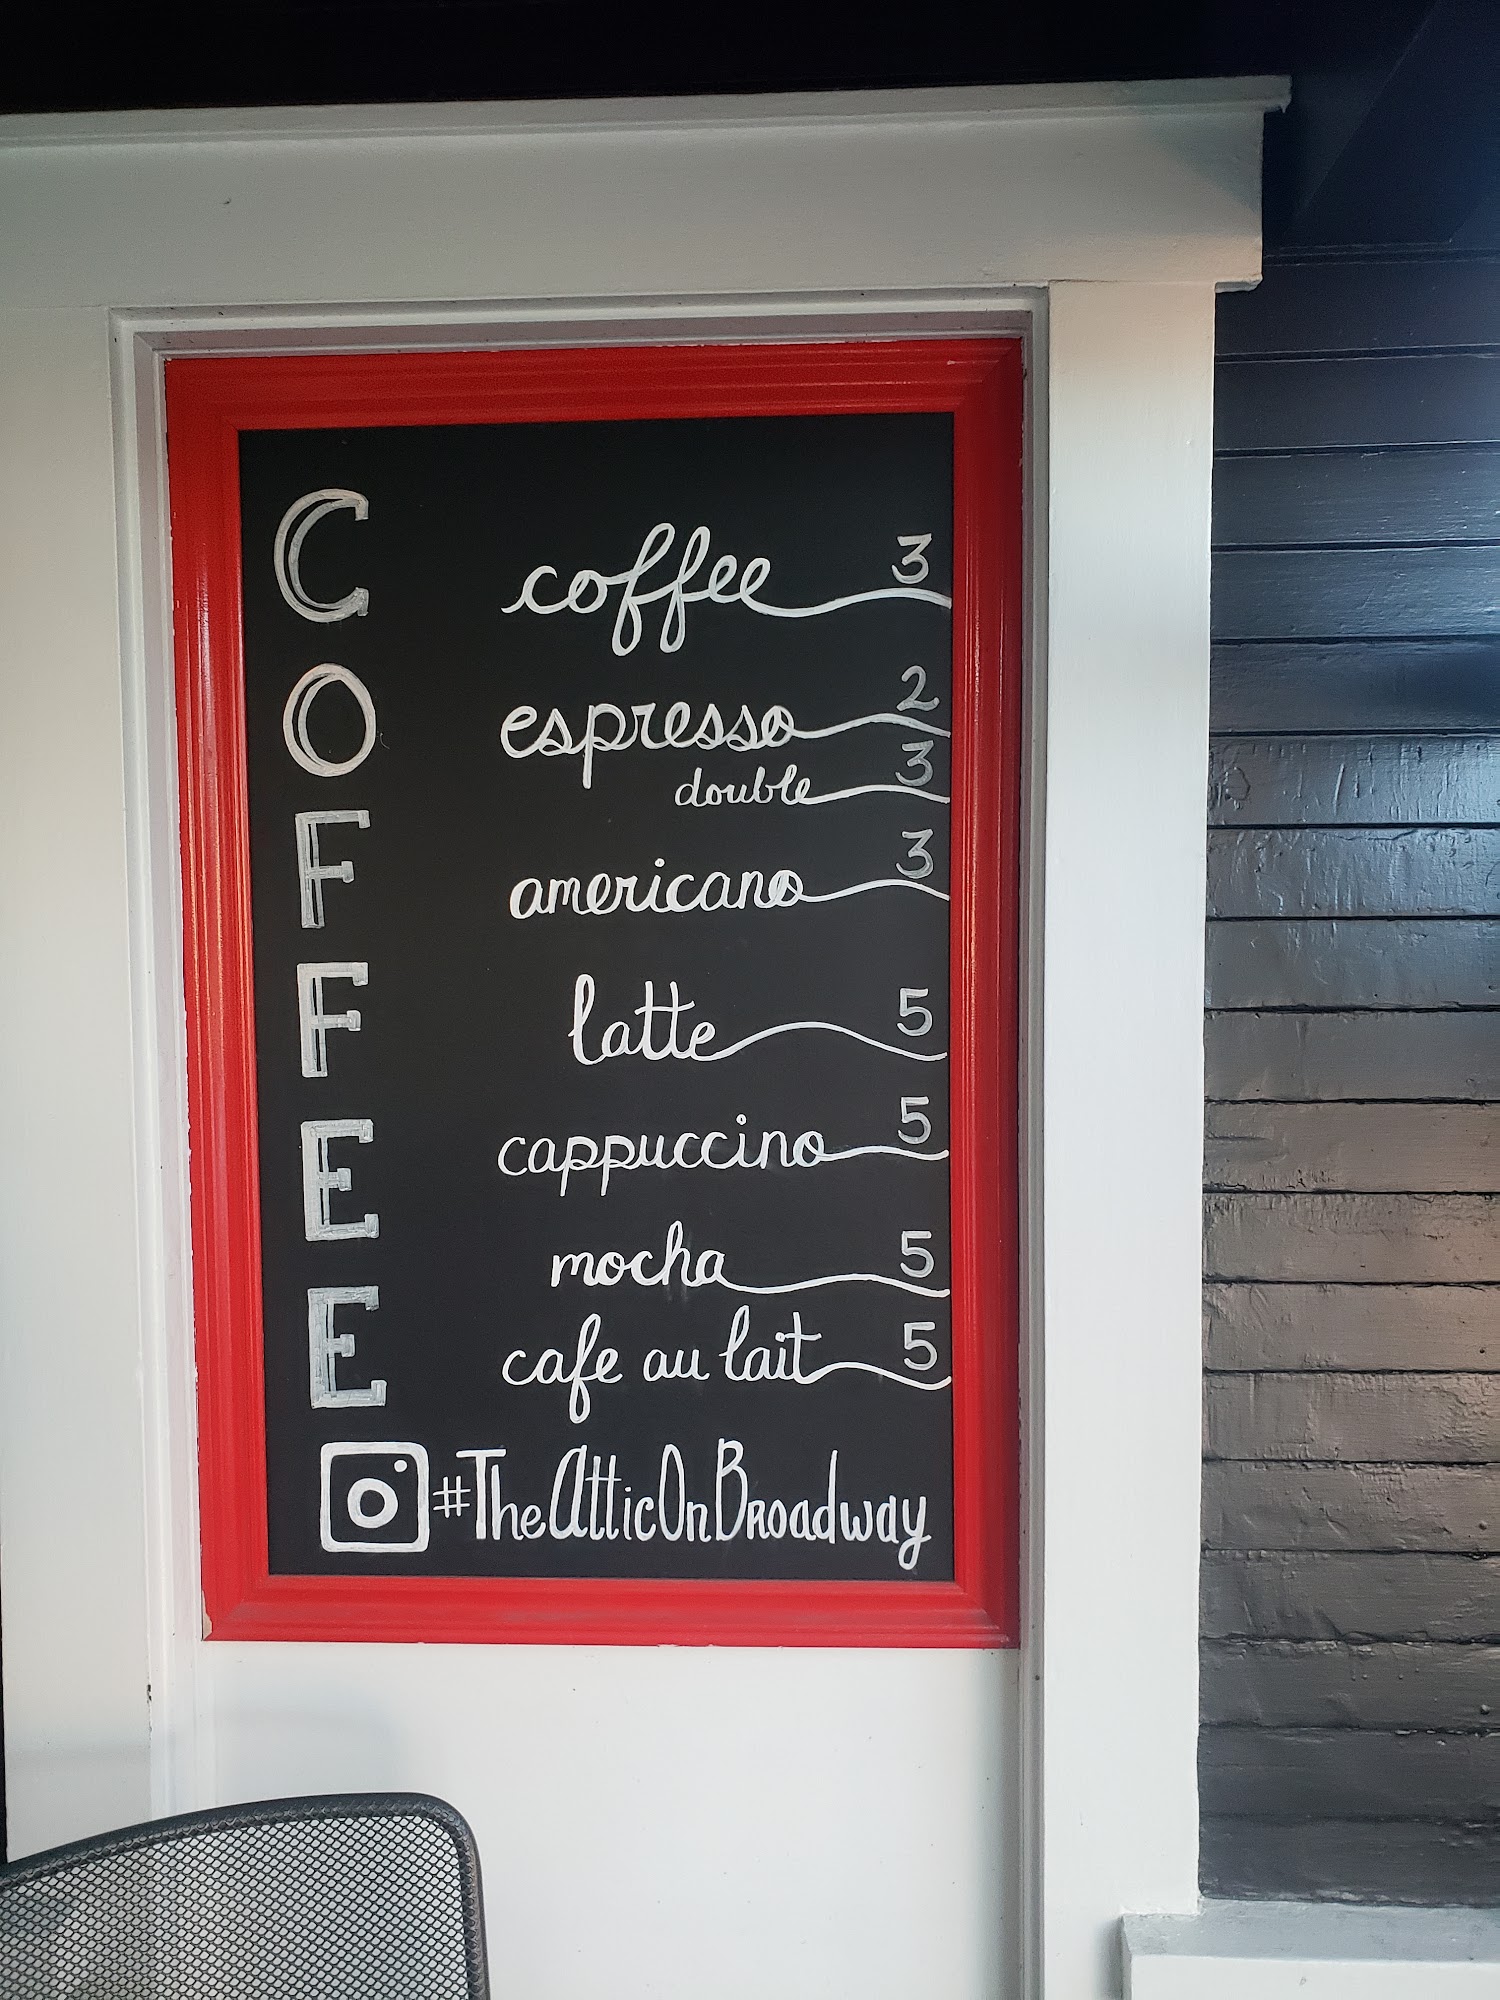 COFFEE
coffee 3
espresso 2
double 3
americano 3
latte 5
cappuccino 5
mocha 5
cafe au lait 5
#TheAtticOnBroadway